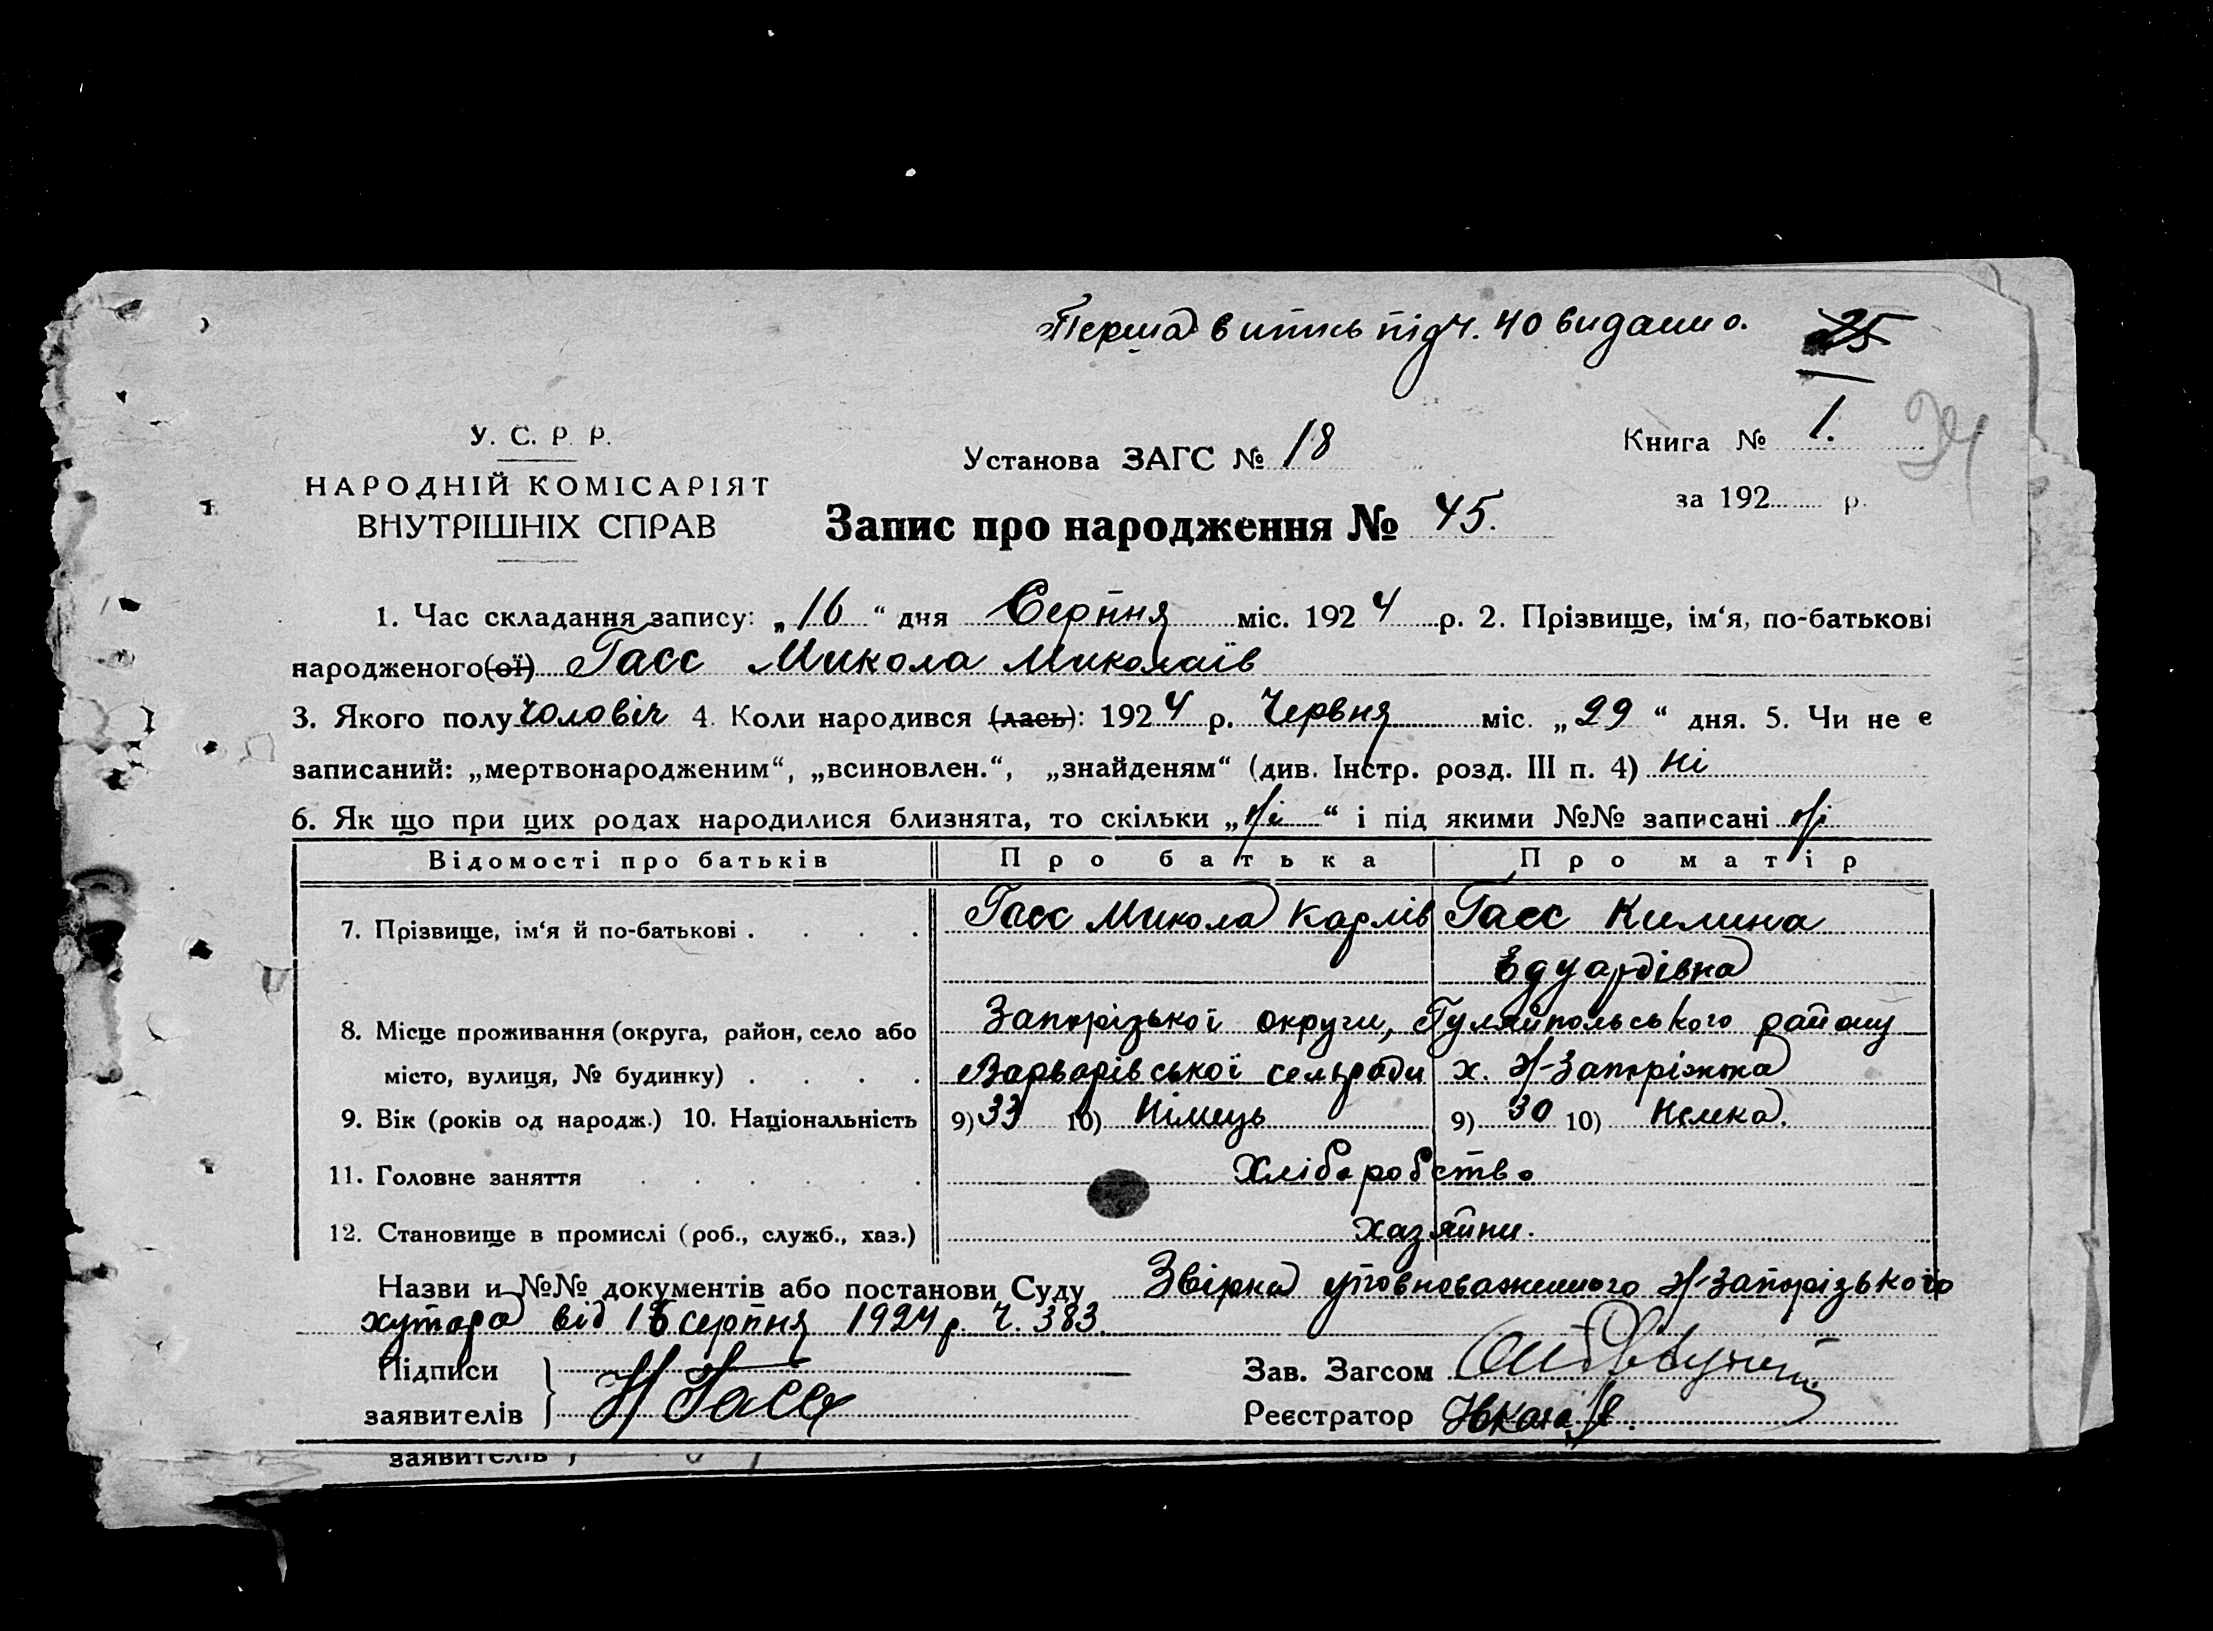 Перша витпсь під ч. 40 видано.
25
24
У. С. Р. Р.
НАРОДНІЙ КОМІСАРІЯТ
ВНУТРІШНІХ СПРАВ
Установа ЗАГС № 18
Книга № 1.
за 192 р.
Запис про народження № 45.
1. Час складання запису: „16“ дня Серпня міс. 1924 р. 2. Прізвище, ім‘я, по-батькові
народженого(ої) Гасс Микола Миколаїв
3. Якого полу чоловіч 4. Коли народився (лась): 1924 р. Червня міс. „29“ дня. 5. Чи не є
записаний: „мертвонародженим“, „всиновлен.“, „знайденям“ (див. Інстр. розд. III п. 4) ні
6. Як що при цих родах народилися близнята, то скільки „ні“ і під якими №№ записані ні
Відомості про батьків Про батька Про матір
7. Прізвище, ім‘я й по-батькові . . . . Гасс Микола Карлів Гасс Килина
Едуардівна
8. Місце проживання (округа, район, село або Запорізької округи, Гуляйпольського району
місто, вулиця, № будинку) . . . . Варварівської сельради х. Н-Запоріжжа
9. Вік (років од народж.) 10. Національність 9) 33 10) Німець 9) 30 10) Немка.
11. Головне заняття . . . . . . Хліборобство
12. Становище в промислі (роб., служб., хаз.) хазяйни.
Назви и №№ документів або постанови Суду Звірка уповноваженного Н-Запорізького
хутора від 16 серпня 1924 р. ч. 383.
Підписи
заявителів Н Гасс
Зав. Загсом
Реєстратор
заявителів